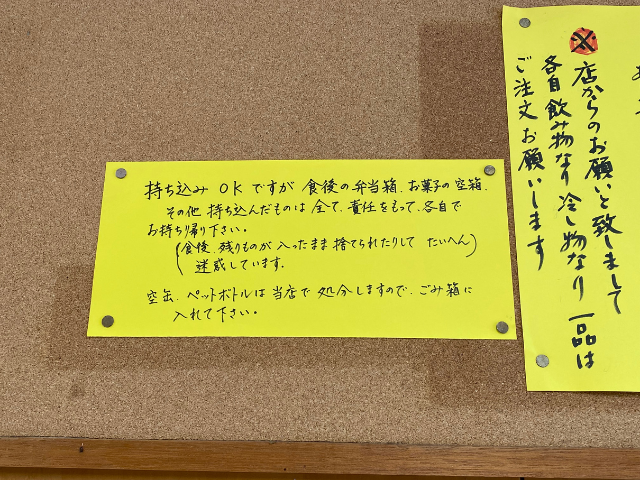 持ち込み OK ですが 食後の弁当箱、お菓子の空箱、
その他 持ち込んだものは 全て、責任をもって、各自で
お持ち帰り下さい。
(食後、残りものが 入ったまま 捨てられたりして たいへん
迷惑しています。)
空缶、ペットボトルは 当店で 処分しますので、ごみ箱に
入れて下さい。
※ 店からのお願いと致しまして
各自 飲み物なり 冷し物なり 一品は
ご注文お願いします